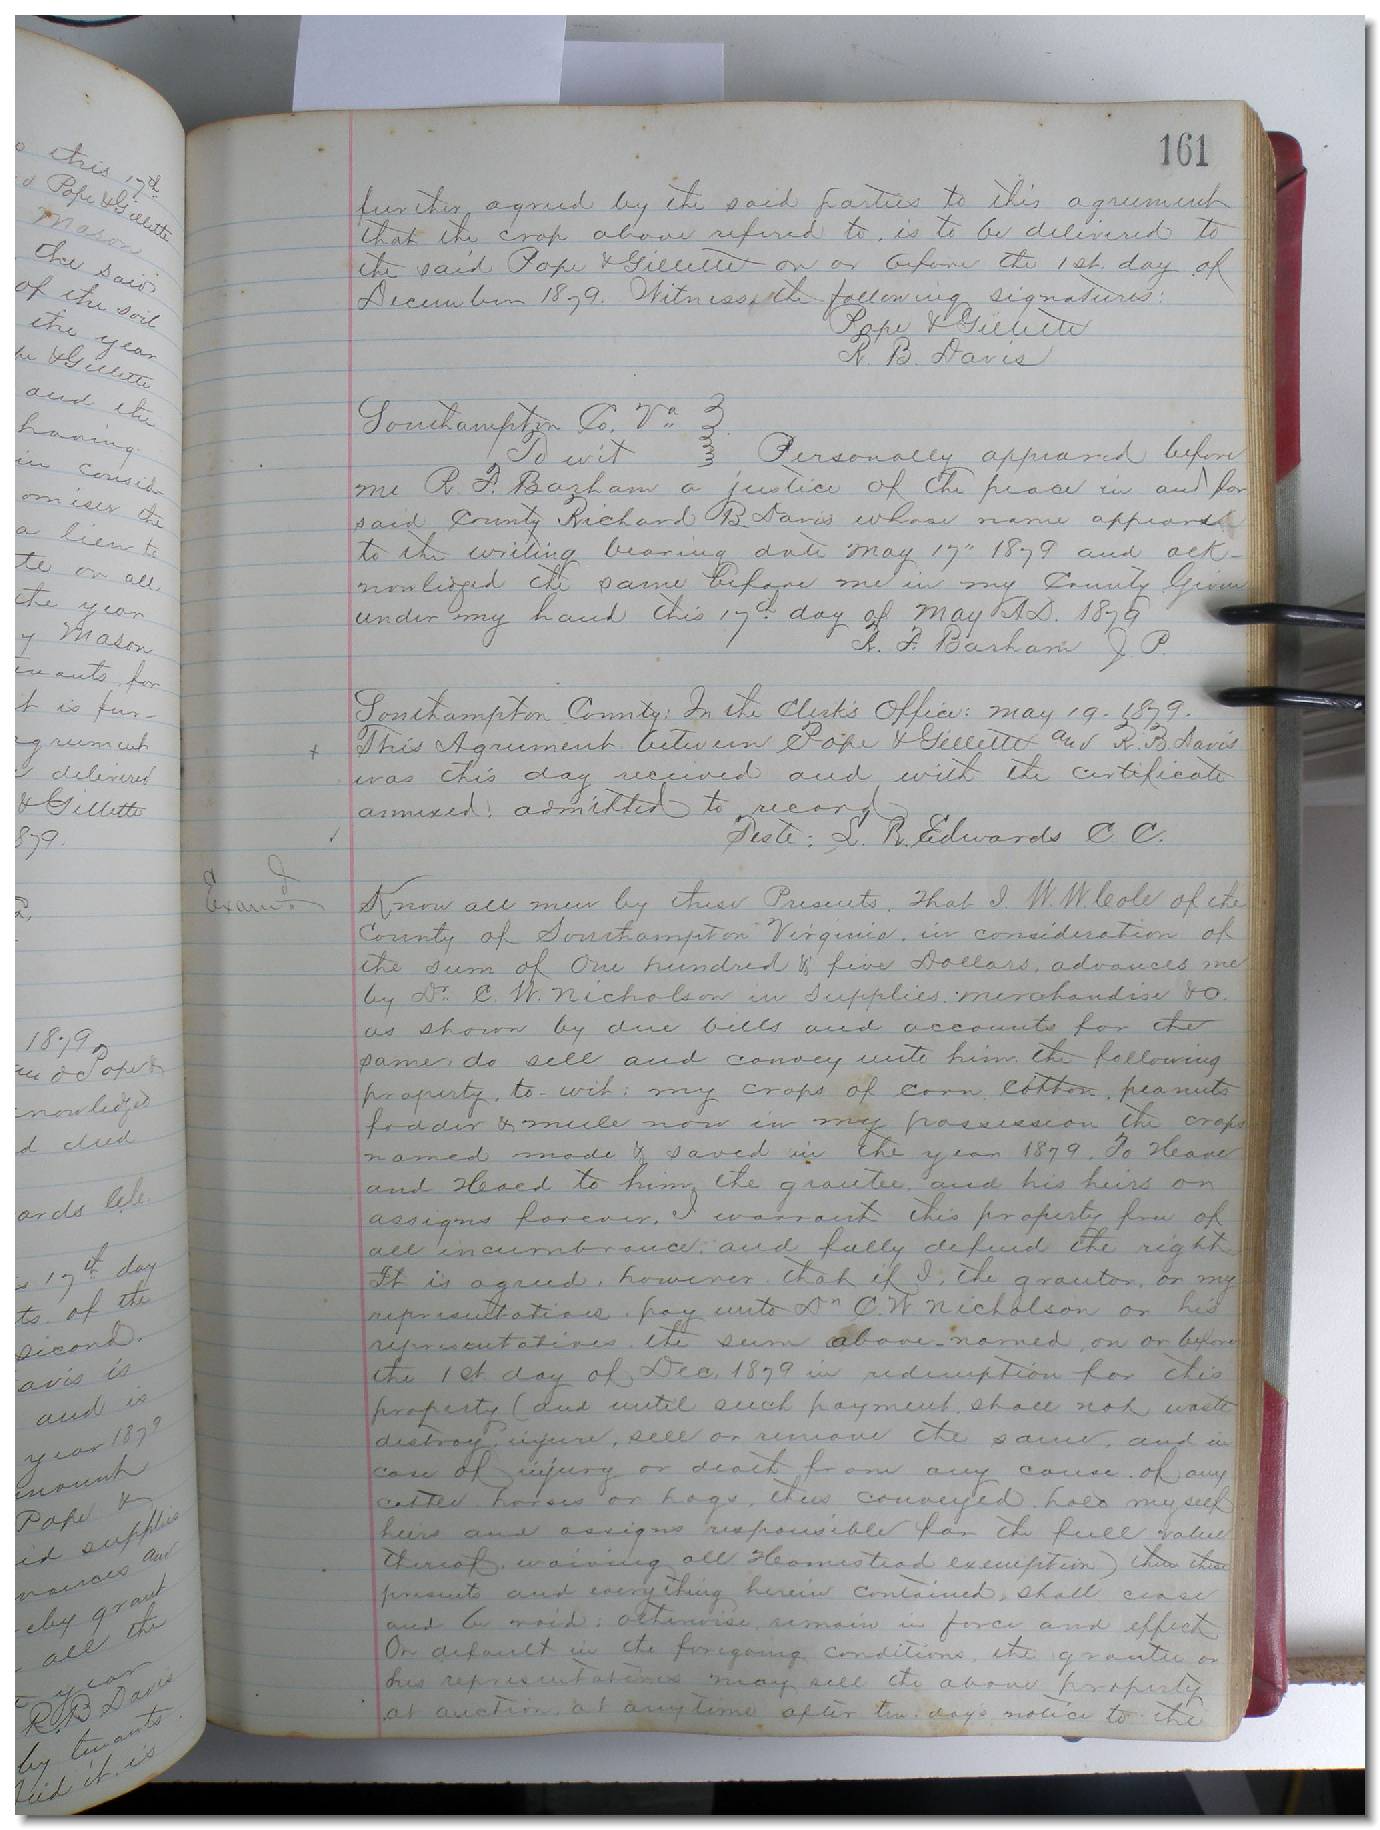 o this 17th
d Pope & Gillette
Mason
the said
of the soil
the year
pe & Gillette
and the
having
in consid-
omises the
a lien to
te on all
the year
y Mason
enants for
it is fur-
agreement
e delivered
& Gillette
879.
1879
Pope &
knowledged
d deed
ards
s 17th day
ts of the
second.
avis is
and is
year 1879
mount
Pope &
id supplies
nances and
eby grant
all the
year
R B Davis
by tenants
And it is
161
further agreed by the said parties to this agreement
that the crop above refered to, is to be delivered to
the said Pope & Gillette on or before the 1st day of
December 1879. Witness the following signatures:
Pope & Gillette
R. B. Davis
Southampton Co. Va
To wit Personally appeared before
me R. F. Barham a justice of the peace in and for
said County Richard B. Davis whose name appears
to the writing bearing date May 17" 1879 and ack-
nowledged the same before me in my County Given
under my hand this 17th day of May A.D. 1879
R. F. Barham J P.
Southampton County: In the Clerk's Office: May 19. 1879.
+ This Agreement between Pope & Gillette and R. B. Davis
was this day received and with the certificate
annexed: admitted to record
Teste: L. R. Edwards C C.
Examd
Know all men by these Presents, That I W. W. Cole of the
County of Southampton Virginia, in consideration of
the sum of One hundred & five Dollars, advances me
by Dr. C. W. Nicholson in supplies, merchandise &c.
as shown by due bills and accounts for the
same, do sell and convey unto him, the following
property, to-wit: my crops of corn, cotton, peanuts
fodder & mule now in my possession the crops
named made & saved in the year 1879. To Have
and Hold to him, the grantee, and his heirs or
assigns forever. I warrant this property free of
all incumbrance, and fully defend the right
It is agreed, however that if I, the grantor, or my
representatives, pay unto Dr C. W. Nicholson or his
representatives, the sum above-named, on or before
the 1st day of Dec, 1879 in redemption for this
property (and until such payment, shall not waste
destroy, injure, sell or remove the same, and in
case of injury or death from any cause, of any
cattle, horses or hogs, thus conveyed hold myself
heirs and assigns responsible for the full value
thereof, waiving all Homestead exemption) then these
presents and everything herein contained, shall cease
and be void; otherwise remain in force and effect
On default in the foregoing conditions, the grantee or
his representatives may sell the above property
at auction, at anytime after ten days notice to the